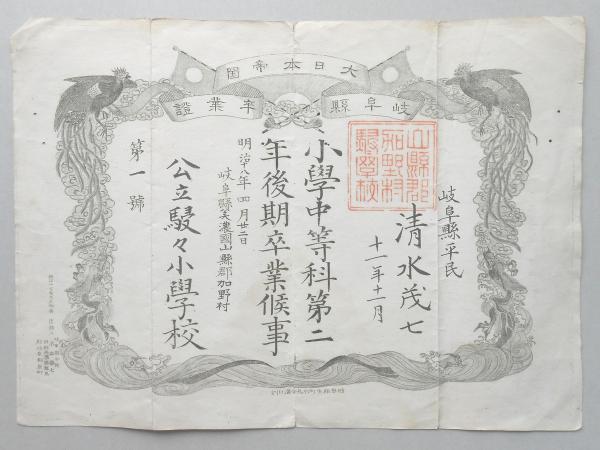 大日本帝國
岐阜縣卒業證
岐阜縣平民
清水茂七
十一年十一月
山縣郡
加野村
駸々學校
小學中等科第二
年後期卒業候事
明治十八年四月廿二日
岐阜縣美濃國山縣郡加野村
公立駸々小學校
第一號